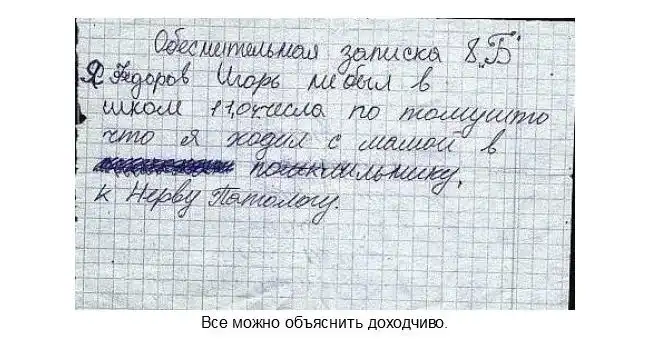 Обеснительная записка 8 „Б"
Я Федоров Игорь не был в
школ 11,04 числа по томушто
что я ходил с мамой в
к Нерву Патологу.
Все можно объяснить доходчиво.